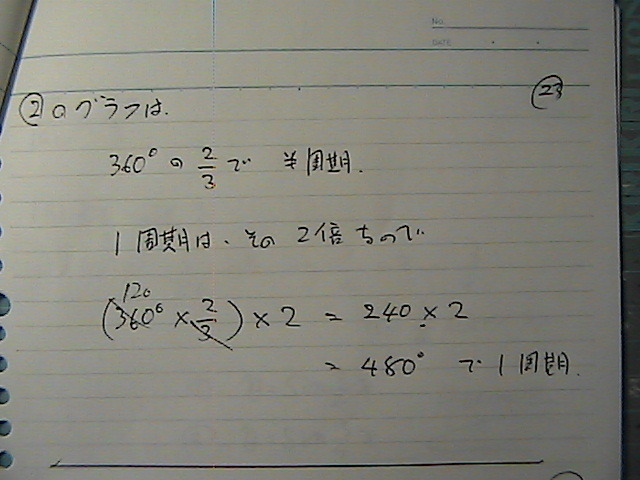 No.
DATE
㉓
②のグラフは.
360°の 2/3 で 半周期.
1周期は、その2倍なので
120
(360° × 2/3) × 2 = 240 × 2
= 480° で1周期.